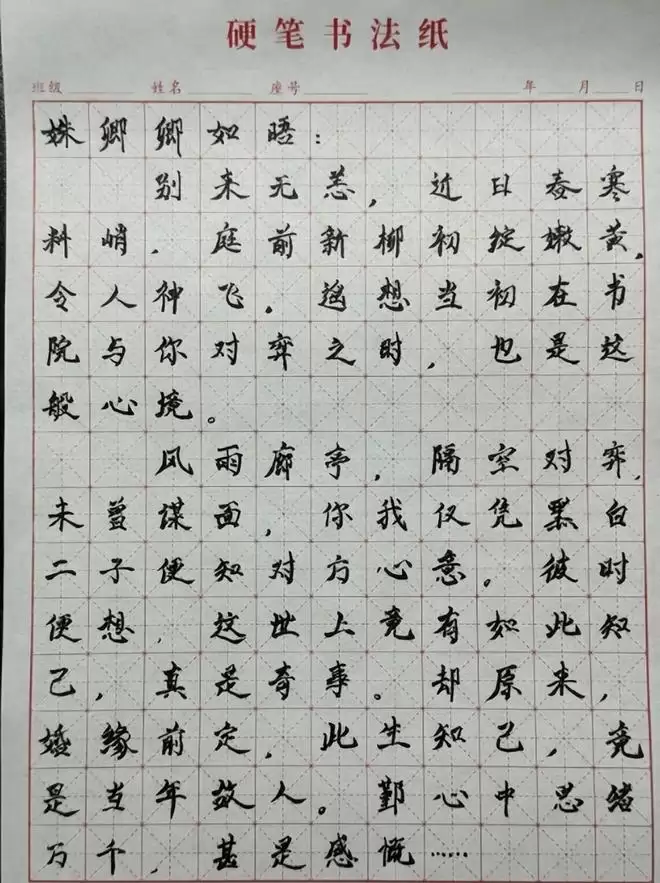 硬笔书法纸
班级 姓名 座号 年 月 日
姝卿卿如晤：
别来无恙，近日春寒
料峭，庭前新柳初绽嫩黄，
令人神飞。遥想当初在书
院与你对弈之时，也是这
般心境。
风雨廊亭，隔空对弈，
未曾谋面，你我仅凭黑白
二子便知对方心意。彼时
便想，这世上竟有如此知
己，真是奇事。却原来，
婚缘前定，此生知己，竟
是当年故人。鄞心中思绪
万千，甚是感慨……